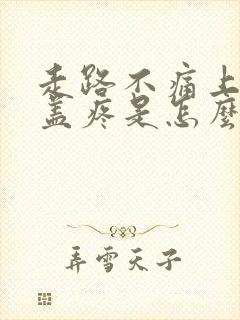 走路不痛上
盖疼是怎麼
弄雪天子